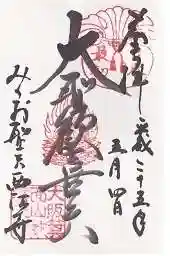 奉拝 平成二十五年
五月四日
大聖歓喜天
みのお聖天西江寺